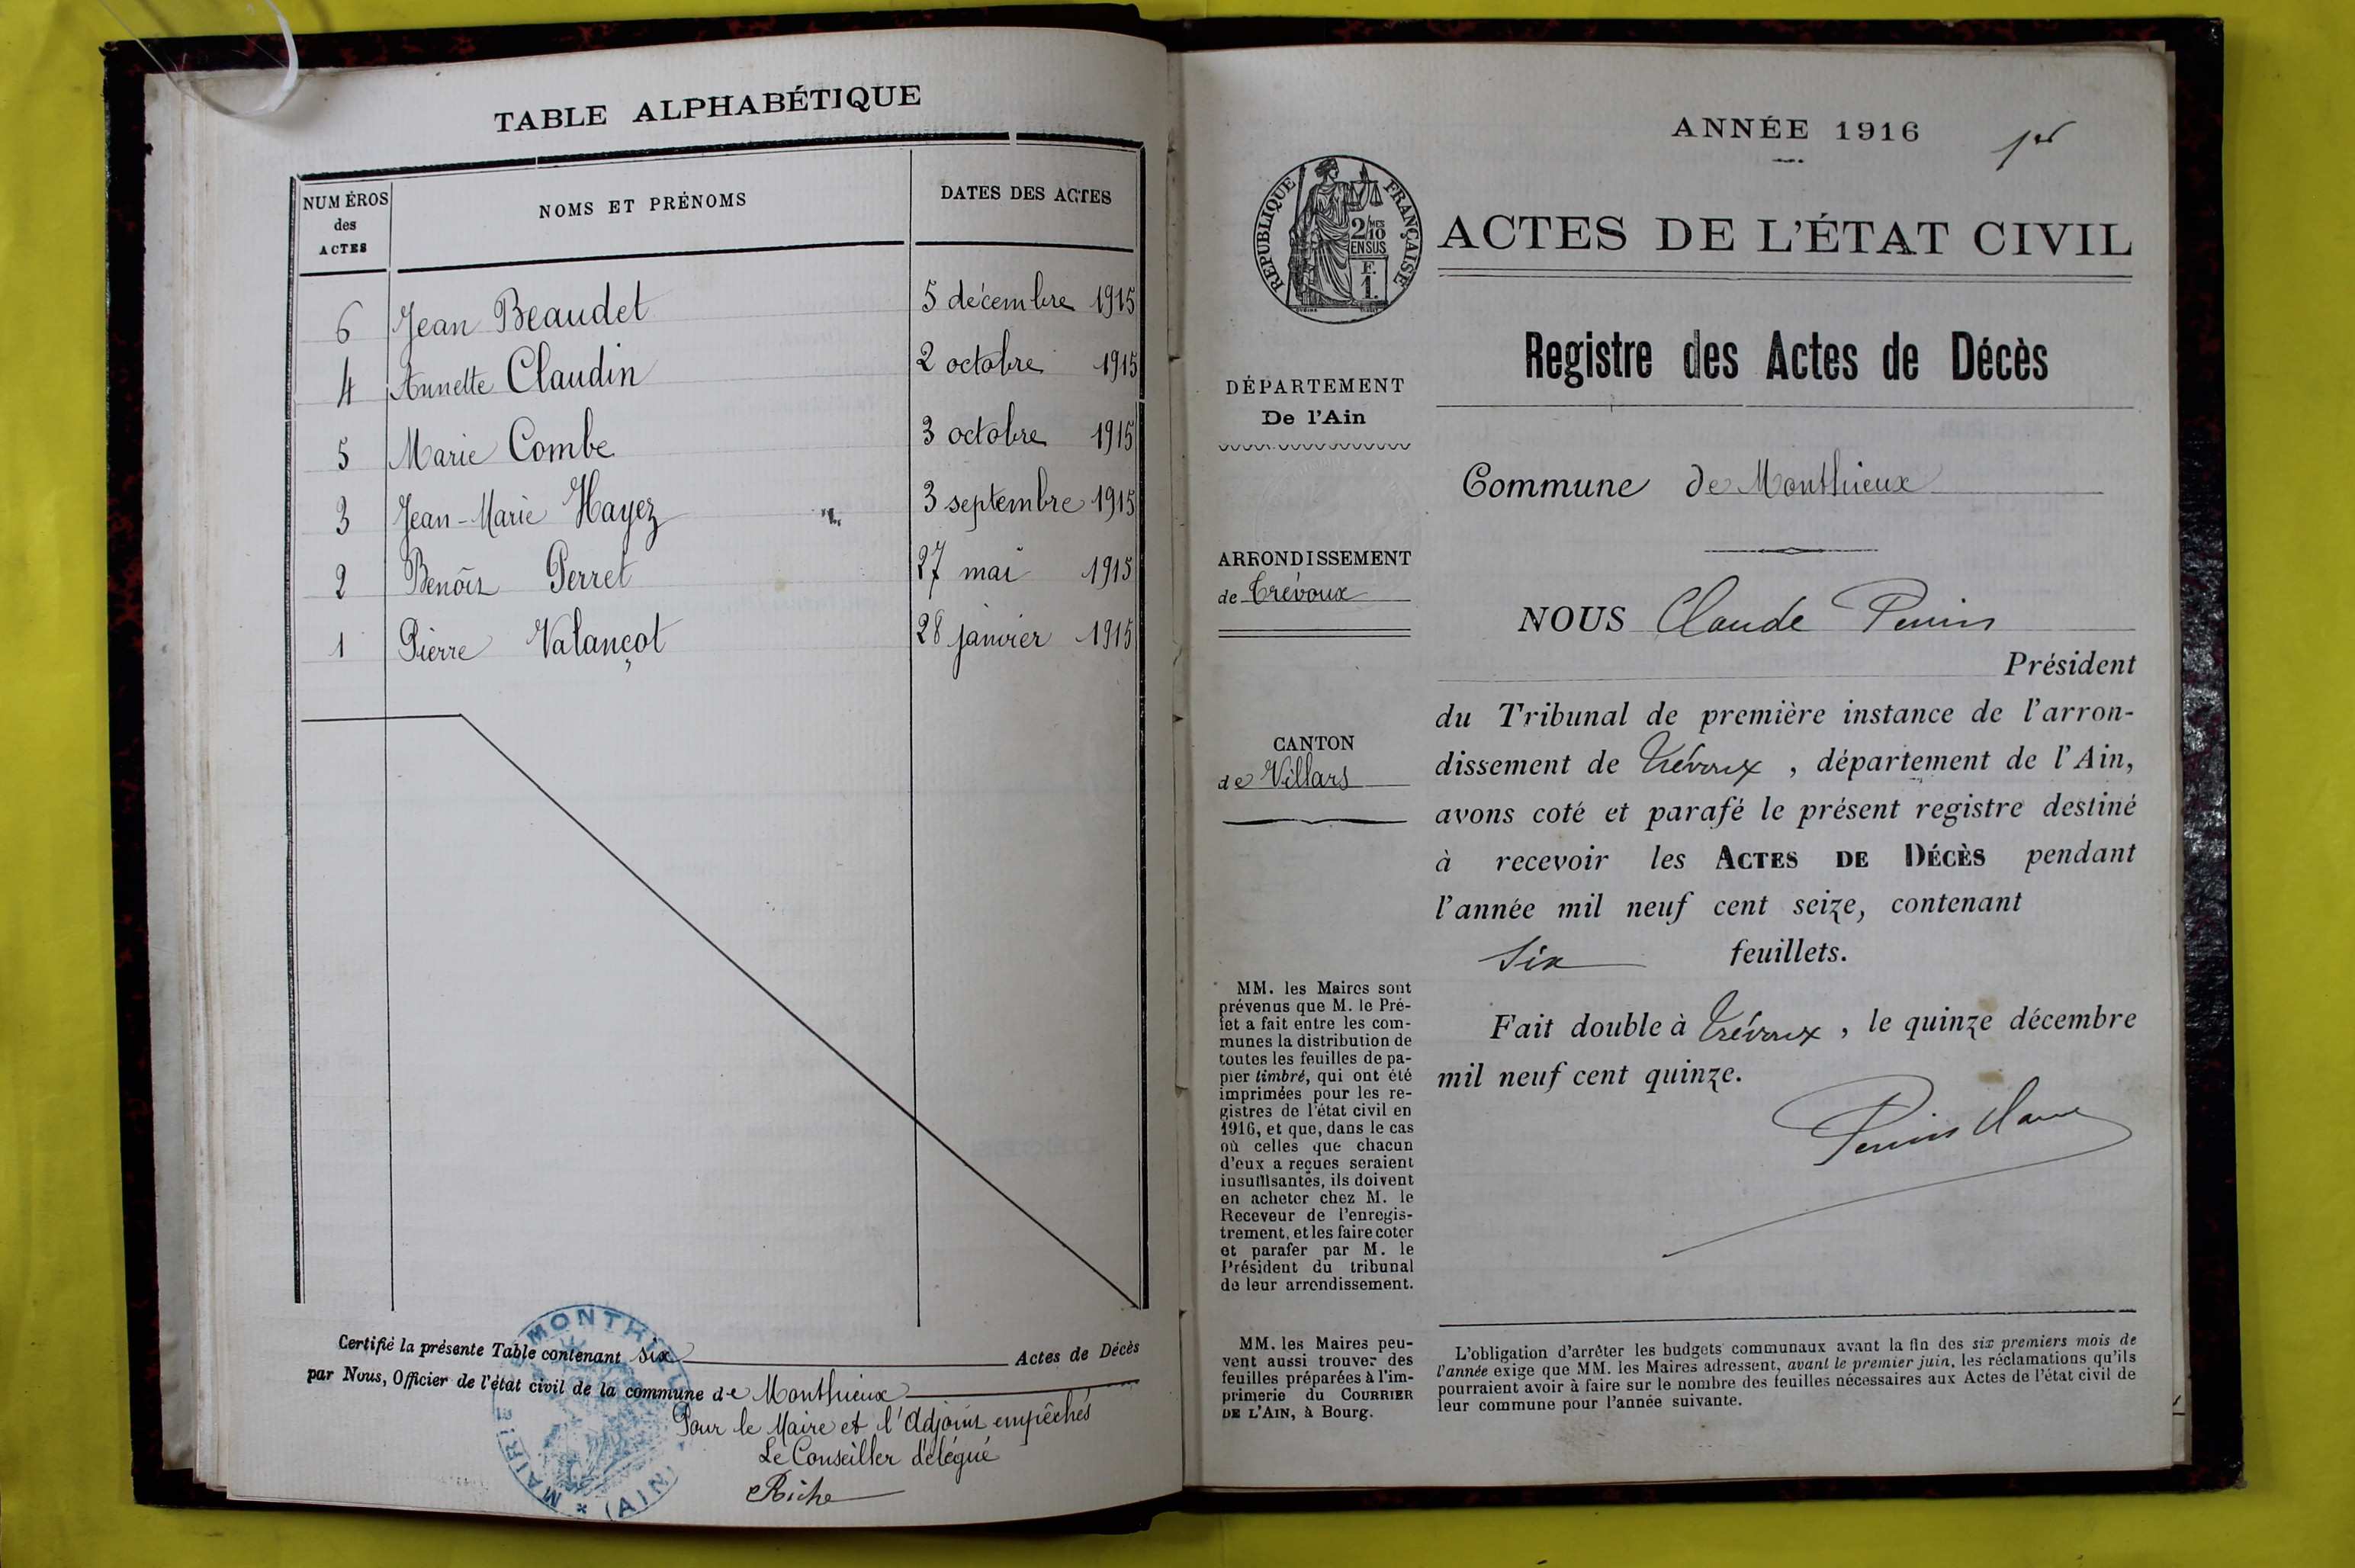 TABLE ALPHABÉTIQUE
NUMÉROS
des
ACTES
NOMS ET PRÉNOMS
DATES DES ACTES
6 Jean Beaudet 5 décembre 1915
4 Annette Claudin 2 octobre 1915
5 Marie Combe 3 octobre 1915
3 Jean-Marie Hayez 3 septembre 1915
2 Benoît Perret 27 mai 1915
1 Pierre Valançot 28 janvier 1915
Certifié la présente Table contenant six Actes de Décès
par Nous, Officier de l'état civil de la commune de Monthieux
Pour le Maire et l'Adjoint empêchés
Le Conseiller délégué
Riche
MAIRIE MONTHIEUX
* (AIN)
ANNÉE 1916
1er
RÉPUBLIQUE FRANÇAISE
2/10 MES
EN SUS
F.
1.
ACTES DE L'ÉTAT CIVIL
Registre des Actes de Décès
DÉPARTEMENT
De l'Ain
Commune de Monthieux
ARRONDISSEMENT
de Trévoux
CANTON
de Villars
NOUS Claude Perrin
Président
du Tribunal de première instance de l'arron-
dissement de Trévoux, département de l'Ain,
avons coté et parafé le présent registre destiné
à recevoir les ACTES DE DÉCÈS pendant
l'année mil neuf cent seize, contenant
Six feuillets.
Fait double à Trévoux, le quinze décembre
mil neuf cent quinze.
Perrin Claude
MM. les Maires sont
prévenus que M. le Pré-
fet a fait entre les com-
munes la distribution de
toutes les feuilles de pa-
pier timbré, qui ont été
imprimées pour les re-
gistres de l'état civil en
1916, et que, dans le cas
où celles que chacun
d'eux a reçues seraient
insuffisantes, ils doivent
en acheter chez M. le
Receveur de l'enregis-
trement, et les faire coter
et parafer par M. le
Président du tribunal
de leur arrondissement.
MM. les Maires peu-
vent aussi trouver des
feuilles préparées à l'im-
primerie du COURRIER
DE L'AIN, à Bourg.
L'obligation d'arrêter les budgets communaux avant la fin des six premiers mois de
l'année exige que MM. les Maires adressent, avant le premier juin, les réclamations qu'ils
pourraient avoir à faire sur le nombre des feuilles nécessaires aux Actes de l'état civil de
leur commune pour l'année suivante.